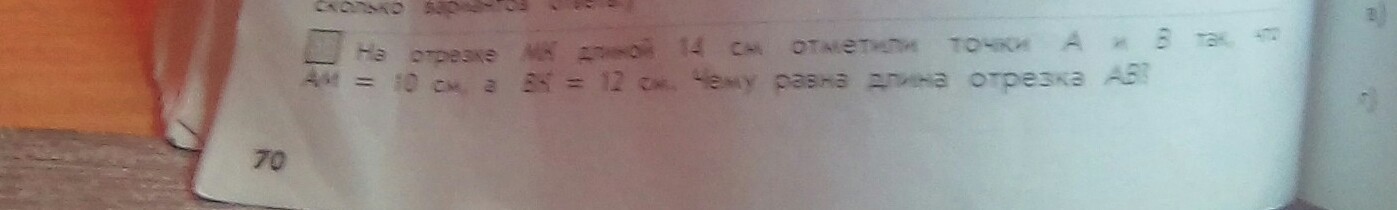 сколько вариантов ответа?)
На отрезке МК длиной 14 см отметили точки А и В так, что
АМ = 10 см, а ВК = 12 см. Чему равна длина отрезка АВ?
70
в)
г)